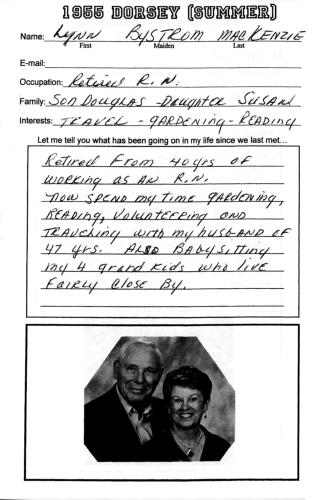 1955 DORSEY (SUMMER)
Name: Lynn BYSTROM MACKENZIE
First Maiden Last
E-mail:
Occupation: Retired R.N.
Family: SON DOUGLAS - DAUGHTER SUSAN
Interests: TRAVEL - GARDENING - READING
Let me tell you what has been going on in my life since we last met...
Retired From 40 yrs of
WORKING AS AN R.N.
NOW SPEND my Time GARDENING,
READING, VOLUNTEERING AND
TRAVELING with my husBAND OF
47 yrs. ALSO BABYSITTING
my 4 grand Kids who live
FAirly Close By.